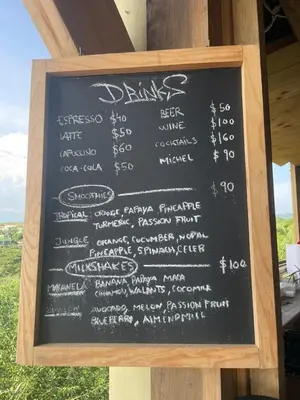 DRINKS
ESPRESSO $40
LATTE $50
CAPUCCINO $60
COCA-COLA $50
BEER $50
WINE $100
COCKTAILS $160
MICHEL $90
SMOOTHIES $90
TROPICAL: ORANGE, PAPAYA PINEAPPLE
TURMERIC, PASSION FRUIT
JUNGLE: ORANGE, CUCUMBER, NOPAL
PINEAPPLE, SPINACH, CELER
MILKSHAKES $100
BANANA PAPAYA MACA
WALNUTS, COCOMILK
AVOCADO, MELON, PASSION FRUIT
BLUEBERRY, ALMENDMILK